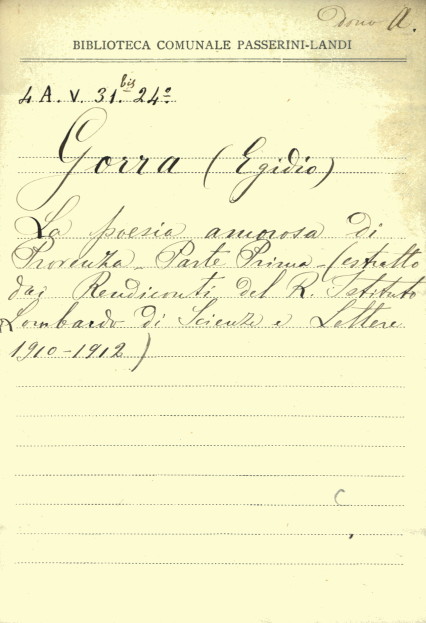 Dono A.
BIBLIOTECA COMUNALE PASSERINI-LANDI
4 A. V. 31.bis 24º
Gorra (Egidio)
La poesia amorosa di
Provenza - Parte Prima - (estratto
dai Rendiconti del R. Istituto
Lombardo di Scienze e Lettere
1910-1912)